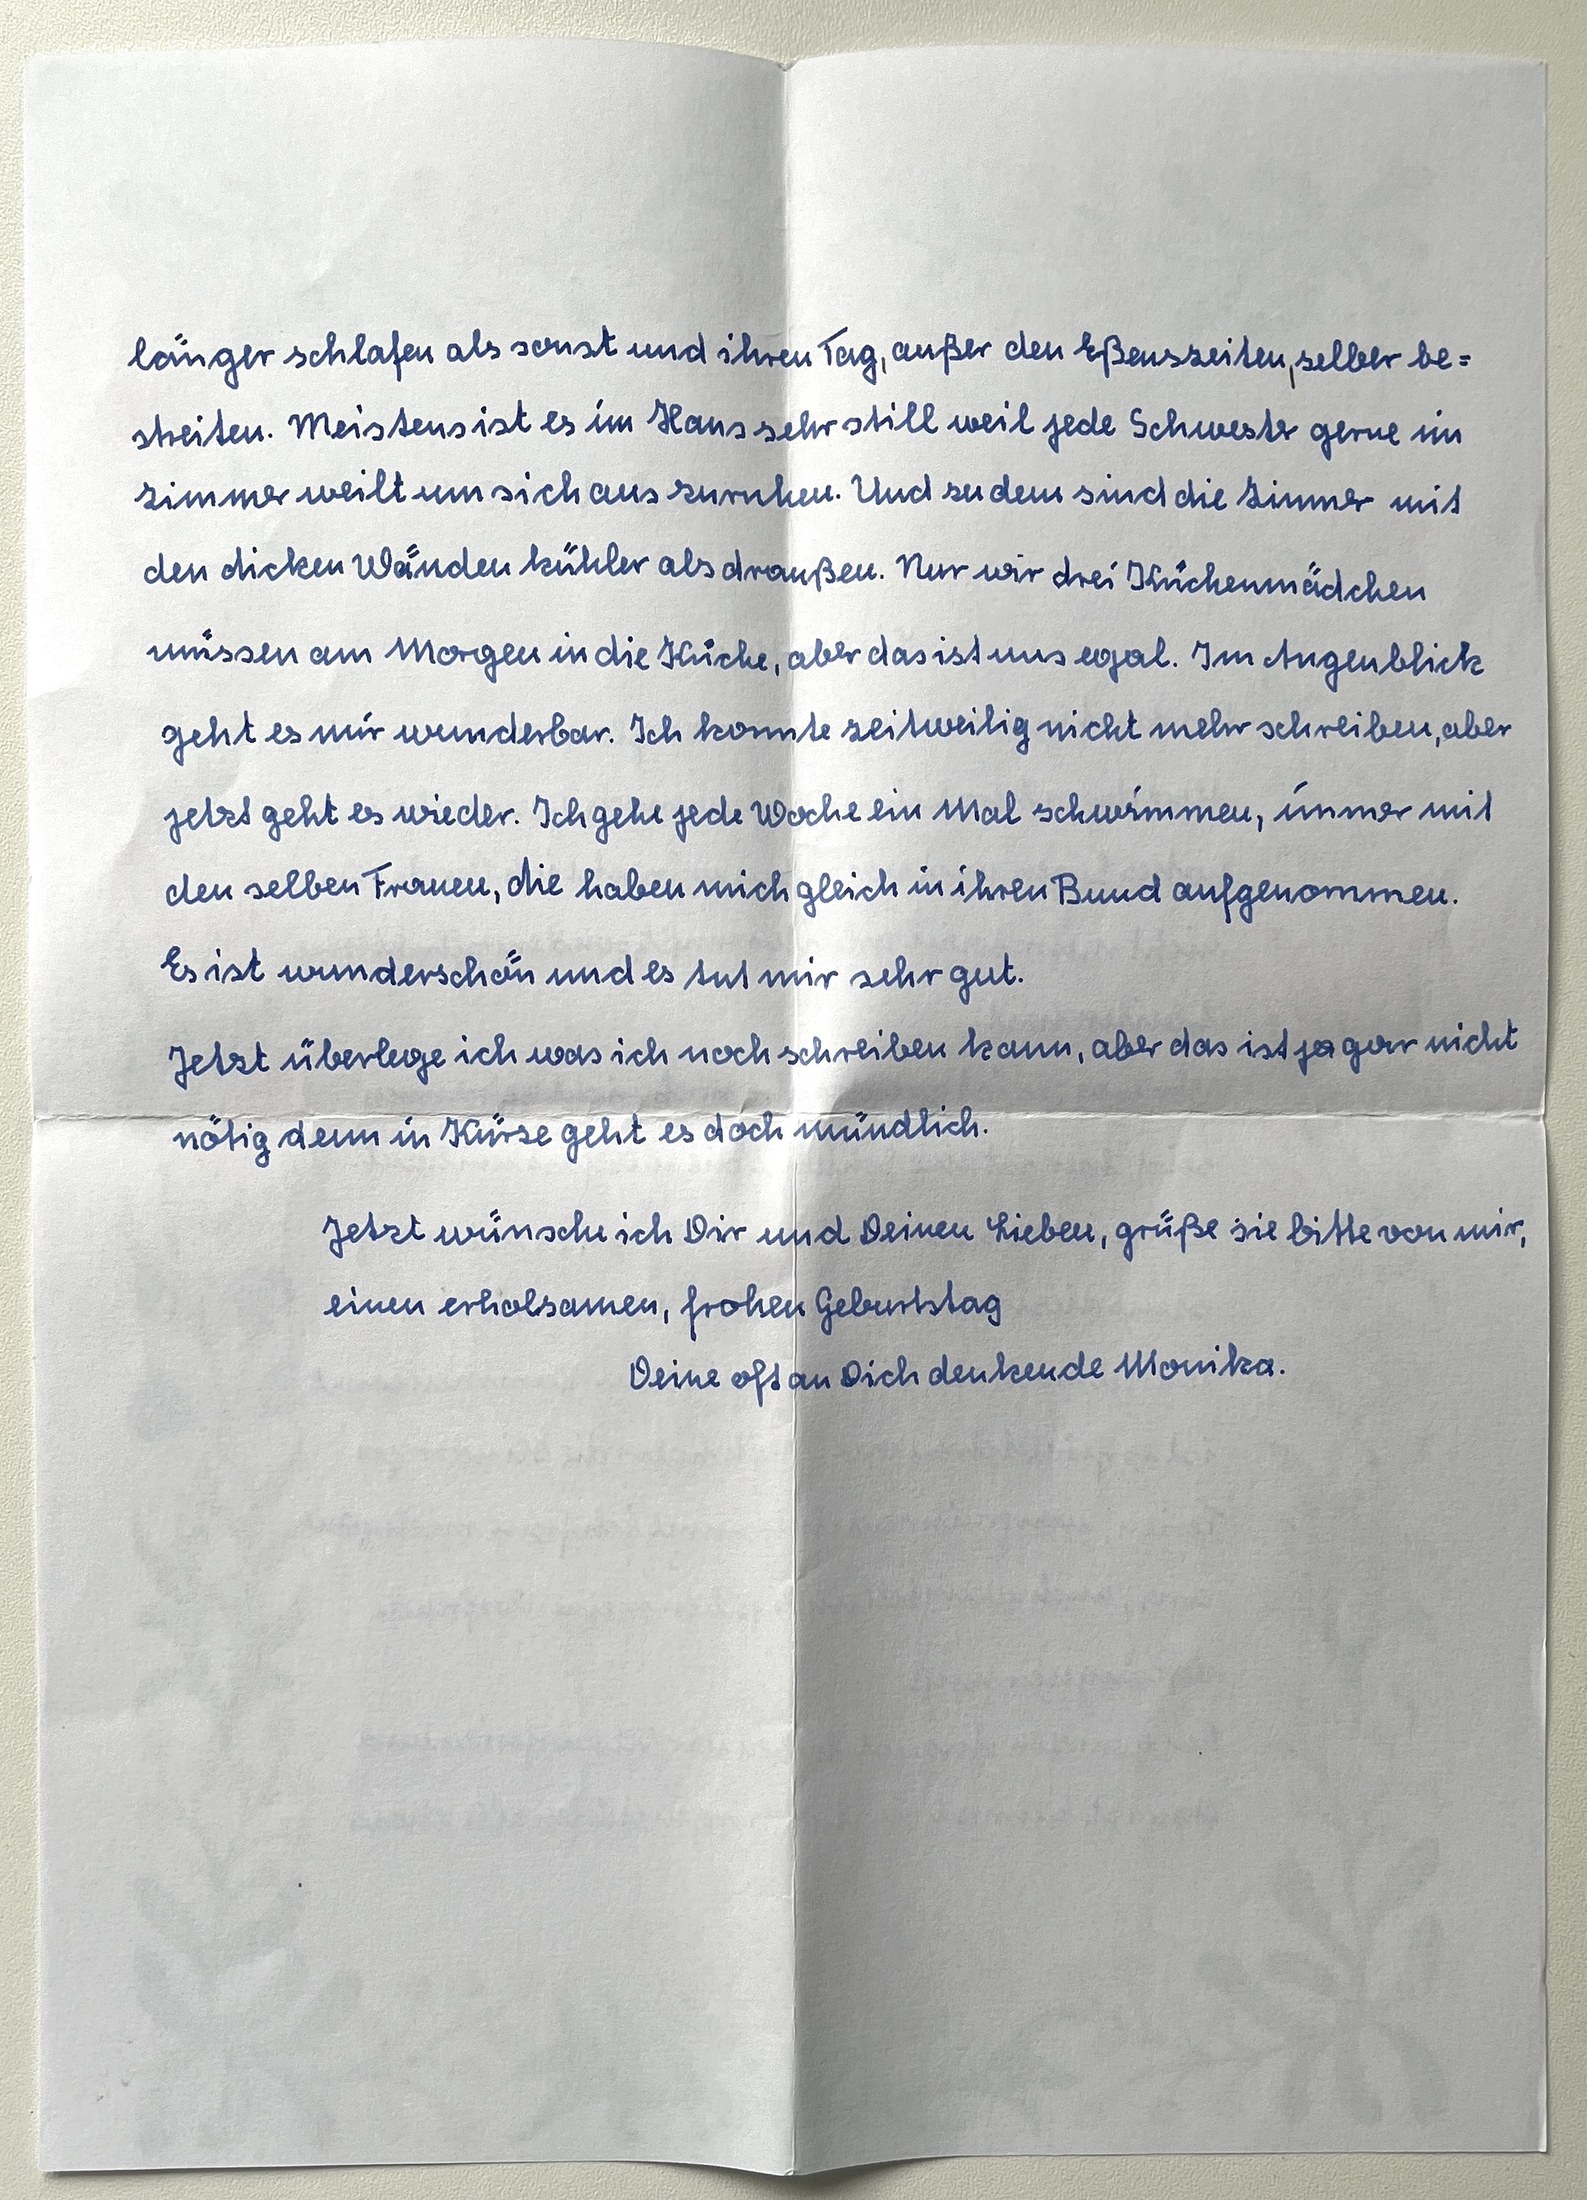 länger schlafen als sonst und ihren Tag, außer den Eßenszeiten, selber be=
streiten. Meistens ist es im Haus sehr still weil jede Schwester gerne im
Zimmer weilt um sich aus zuruhen. Und zu dem sind die Zimmer mit
den dicken Wänden kühler als draußen. Nur wir drei Küchenmädchen
müssen am Morgen in die Küche, aber das ist uns egal. Im Augenblick
geht es mir wunderbar. Ich konnte zeitweilig nicht mehr schreiben, aber
jetzt geht es wieder. Ich gehe jede Woche ein Mal schwimmen, immer mit
den selben Frauen, die haben mich gleich in ihren Bund aufgenommen.
Es ist wunderschön und es tut mir sehr gut.
Jetzt überlege ich was ich noch schreiben kann, aber das ist ja gar nicht
nötig denn in Kürze geht es doch mündlich.
Jetzt wünsche ich Dir und Deinen Lieben, grüße sie bitte von mir,
einen erholsamen, frohen Geburtstag
Deine oft an Dich denkende Monika.